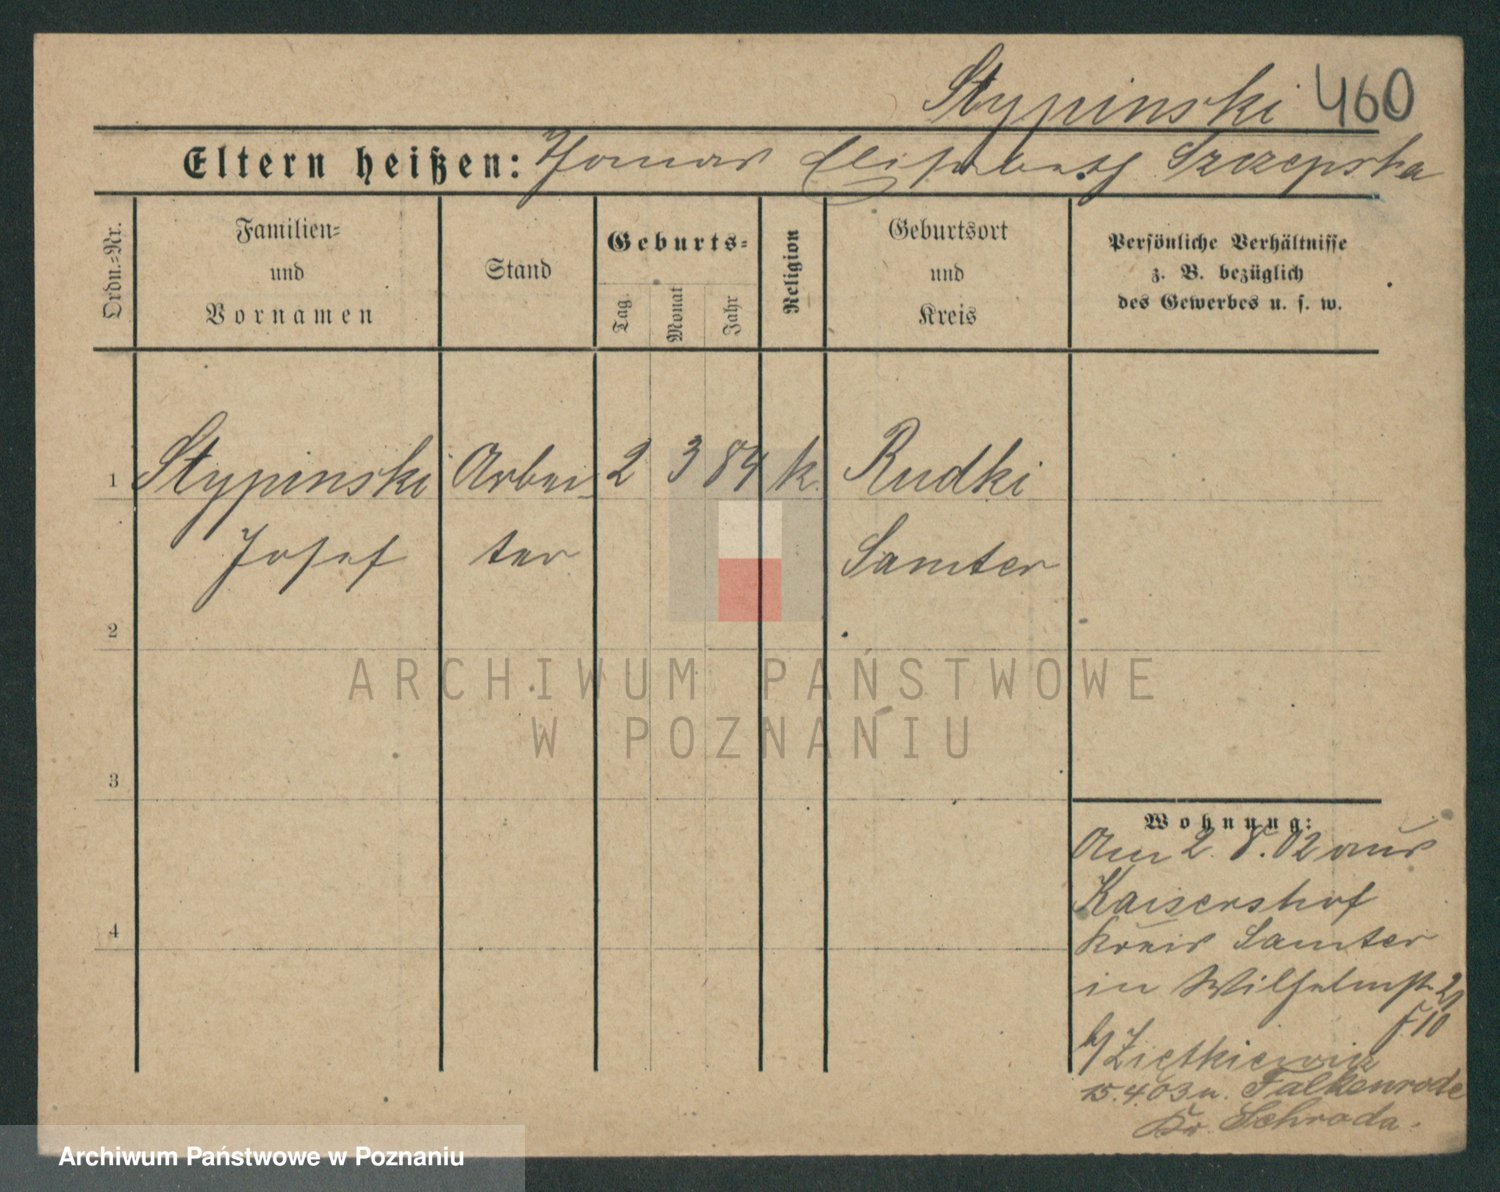 Stypinski 460
Eltern heißen: Thomas Elisabeth Szczepska
Ordn.=Nr.
Familien=
und
Vornamen
Stand
Geburts=
Tag
Monat
Jahr
Religion
Geburtsort
und
Kreis
Persönliche Verhältnisse
z. B. bezüglich
des Gewerbes u. s. w.
1 Stypinski Arbei- 2 3 84 k. Rudki
Josef ter Samter
2
3
4
Wohnung:
Am 2. 8. 02 aus
Kaisershof
Kreis Samter
in Wilhelmst 21
b/ Zietkiewicz
15.4.03 n. Falkenrode
Kr. Schroda.
ARCHIWUM PAŃSTWOWE
W POZNANIU
Archiwum Państwowe w Poznaniu